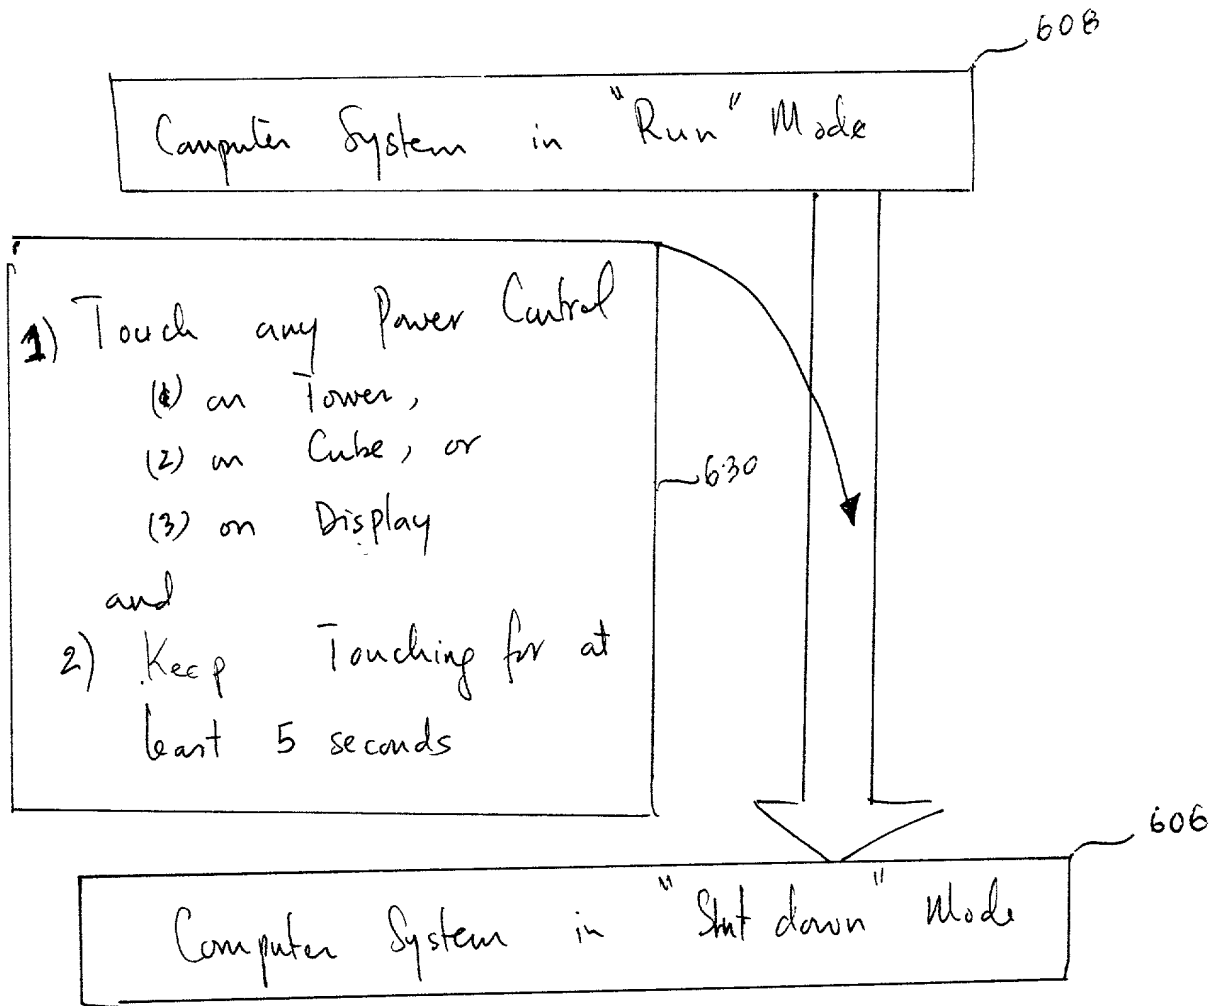 608
Computer System in "Run" Mode
1) Touch any Power Control
(1) on Tower,
(2) on Cube, or
(3) on Display
630
and
2) Keep Touching for at
least 5 seconds
606
Computer System in "Shut down" Mode